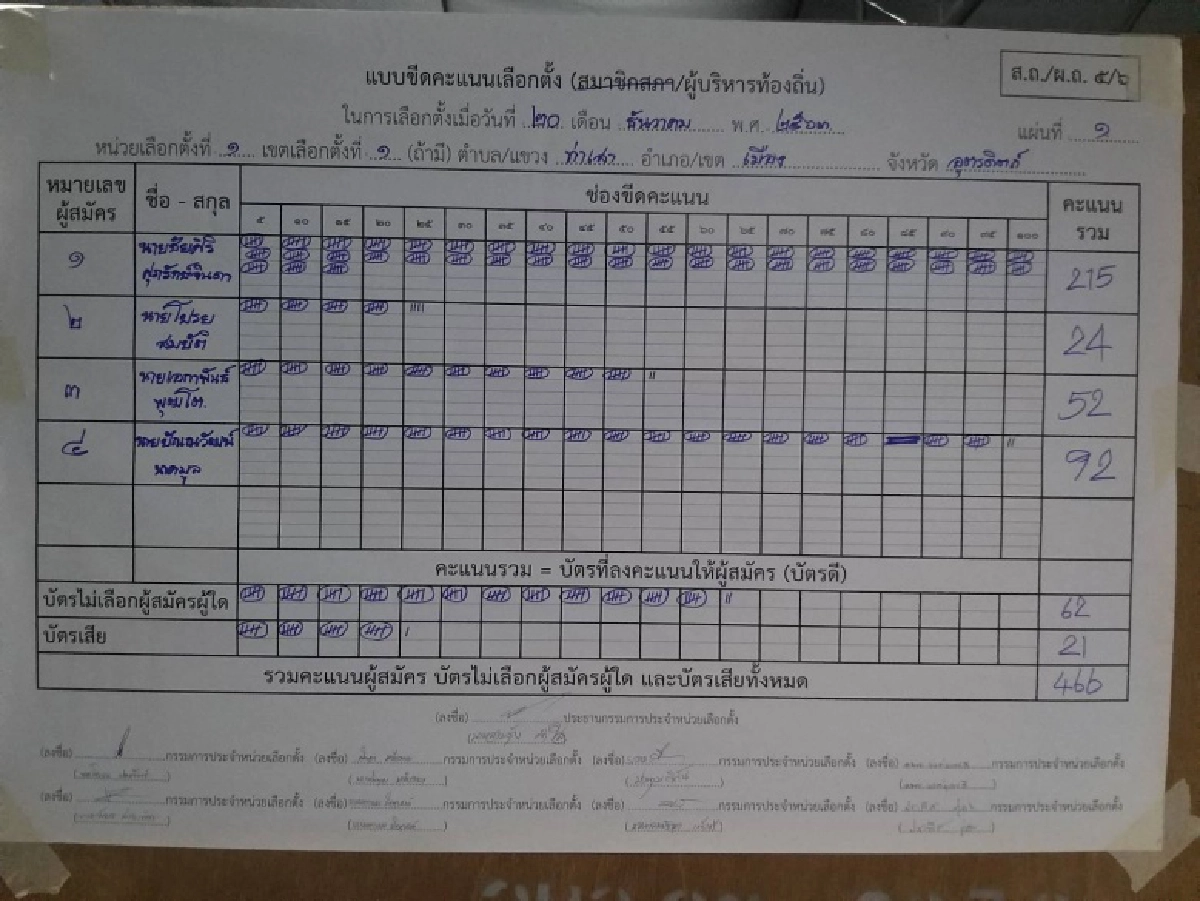 ส.ถ./ผ.ถ. ๕/๖
แบบขีดคะแนนเลือกตั้ง (สมาชิกสภา/ผู้บริหารท้องถิ่น)
ในการเลือกตั้งเมื่อวันที่ ๒๐ เดือน ธันวาคม พ.ศ. ๒๕๖๓
แผ่นที่ ๑
หน่วยเลือกตั้งที่ ๑ เขตเลือกตั้งที่ ๑ (ถ้ามี) ตำบล/แขวง ท่าเสา อำเภอ/เขต เมือง จังหวัด อุตรดิตถ์
หมายเลขผู้สมัคร ชื่อ - สกุล ช่องขีดคะแนน คะแนนรวม
๕ ๑๐ ๑๕ ๒๐ ๒๕ ๓๐ ๓๕ ๔๐ ๔๕ ๕๐ ๕๕ ๖๐ ๖๕ ๗๐ ๗๕ ๘๐ ๘๕ ๙๐ ๙๕ ๑๐๐
๑ นายชัยศิริ ศุภรักษ์จินดา 215
๒ นายโปรย สมบัติ 24
๓ นายเอกาพันธ์ พุฒโต 52
๔ 92
คะแนนรวม = บัตรที่ลงคะแนนให้ผู้สมัคร (บัตรดี)
บัตรไม่เลือกผู้สมัครผู้ใด 62
บัตรเสีย 21
รวมคะแนนผู้สมัคร บัตรไม่เลือกผู้สมัครผู้ใด และบัตรเสียทั้งหมด 466
(ลงชื่อ) ประธานกรรมการประจำหน่วยเลือกตั้ง
(ลงชื่อ) กรรมการประจำหน่วยเลือกตั้ง (ลงชื่อ) กรรมการประจำหน่วยเลือกตั้ง (ลงชื่อ) กรรมการประจำหน่วยเลือกตั้ง (ลงชื่อ) กรรมการประจำหน่วยเลือกตั้ง
(ลงชื่อ) กรรมการประจำหน่วยเลือกตั้ง (ลงชื่อ) กรรมการประจำหน่วยเลือกตั้ง (ลงชื่อ) กรรมการประจำหน่วยเลือกตั้ง (ลงชื่อ) กรรมการประจำหน่วยเลือกตั้ง